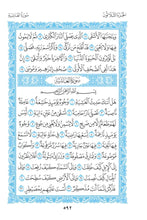 سورة الغاشية الجزء الثلاثون
وَيَتَجَنَّبُهَا الْأَشْقَى ۝ الَّذِي يَصْلَى النَّارَ الْكُبْرَىٰ ۝ ثُمَّ لَا يَمُوتُ
فِيهَا وَلَا يَحْيَىٰ ۝ قَدْ أَفْلَحَ مَن تَزَكَّىٰ ۝ وَذَكَرَ اسْمَ رَبِّهِ فَصَلَّىٰ ۝
بَلْ تُؤْثِرُونَ الْحَيَاةَ الدُّنْيَا ۝ وَالْآخِرَةُ خَيْرٌ وَأَبْقَىٰ ۝ إِنَّ هَٰذَا
لَفِي الصُّحُفِ الْأُولَىٰ ۝ صُحُفِ إِبْرَاهِيمَ وَمُوسَىٰ ۝
سورة الغاشية
بِسْمِ اللَّهِ الرَّحْمَٰنِ الرَّحِيمِ
هَلْ أَتَاكَ حَدِيثُ الْغَاشِيَةِ ۝ وُجُوهٌ يَوْمَئِذٍ خَاشِعَةٌ ۝
عَامِلَةٌ نَّاصِبَةٌ ۝ تَصْلَىٰ نَارًا حَامِيَةً ۝ تُسْقَىٰ مِنْ عَيْنٍ آنِيَةٍ ۝ لَّيْسَ
لَهُمْ طَعَامٌ إِلَّا مِن ضَرِيعٍ ۝ لَّا يُسْمِنُ وَلَا يُغْنِي مِن جُوعٍ ۝
وُجُوهٌ يَوْمَئِذٍ نَّاعِمَةٌ ۝ لِّسَعْيِهَا رَاضِيَةٌ ۝ فِي جَنَّةٍ عَالِيَةٍ ۝ لَّا تَسْمَعُ
فِيهَا لَاغِيَةً ۝ فِيهَا عَيْنٌ جَارِيَةٌ ۝ فِيهَا سُرُرٌ مَّرْفُوعَةٌ ۝ وَأَكْوَابٌ
مَّوْضُوعَةٌ ۝ وَنَمَارِقُ مَصْفُوفَةٌ ۝ وَزَرَابِيُّ مَبْثُوثَةٌ ۝ أَفَلَا يَنظُرُونَ
إِلَى الْإِبِلِ كَيْفَ خُلِقَتْ ۝ وَإِلَى السَّمَاءِ كَيْفَ رُفِعَتْ ۝ وَإِلَى
الْجِبَالِ كَيْفَ نُصِبَتْ ۝ وَإِلَى الْأَرْضِ كَيْفَ سُطِحَتْ ۝
فَذَكِّرْ إِنَّمَا أَنتَ مُذَكِّرٌ ۝ لَّسْتَ عَلَيْهِم بِمُصَيْطِرٍ ۝
٥٩٢